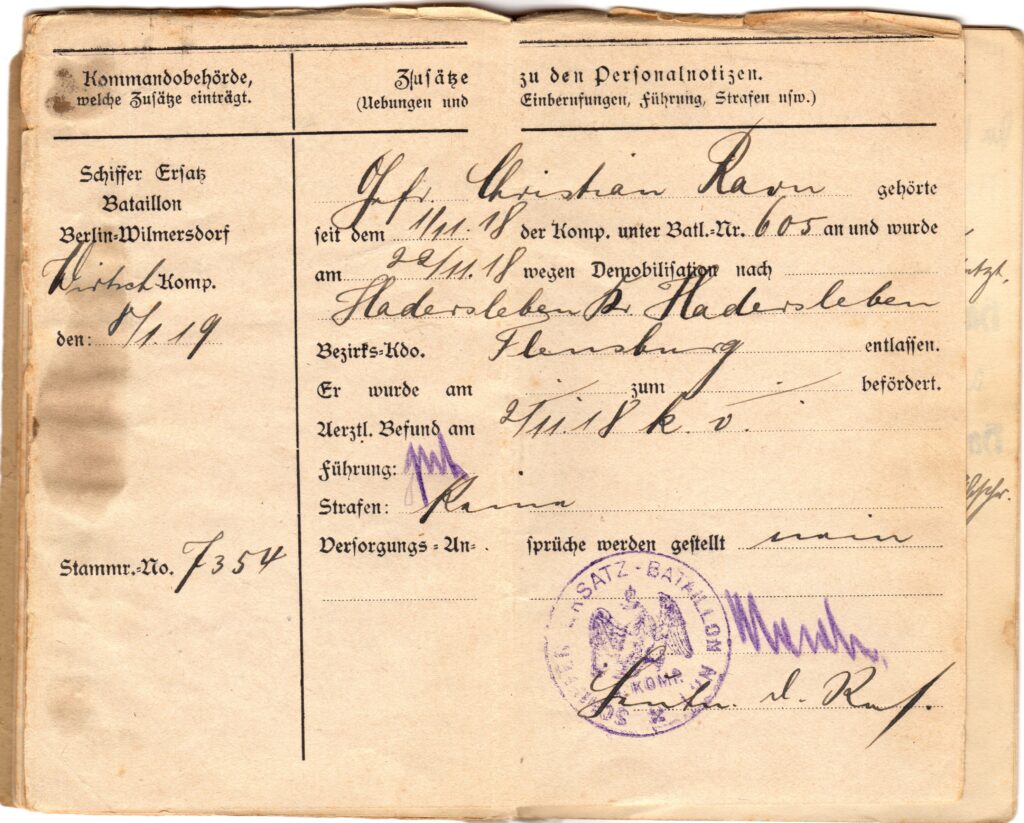 Kommandobehörde,
welche Zusätze einträgt.
Zusätze zu den Personalnotizen.
(Uebungen und Einberufungen, Führung, Strafen usw.)
Schiffer Ersatz
Bataillon
Berlin-Wilmersdorf
Wirtsch Komp.
den: 8/1.19
Stammr.-No. 7354
Gefr. Christian Ravn gehörte
seit dem 1/11.18 der Komp. unter Batl.-Nr. 605 an und wurde
am 22/11.18 wegen Demobilisation nach
Hadersleben Kr. Hadersleben
Bezirks-Kdo. Flensburg entlassen.
Er wurde am / zum / befördert.
Aerztl. Befund am 2/11.18 k. v.
Führung: gut
Strafen: Keine
Versorgungs-An-sprüche werden gestellt nein
SCHIFFER ERSATZ-BATAILLON
KOMP.
d. Res.